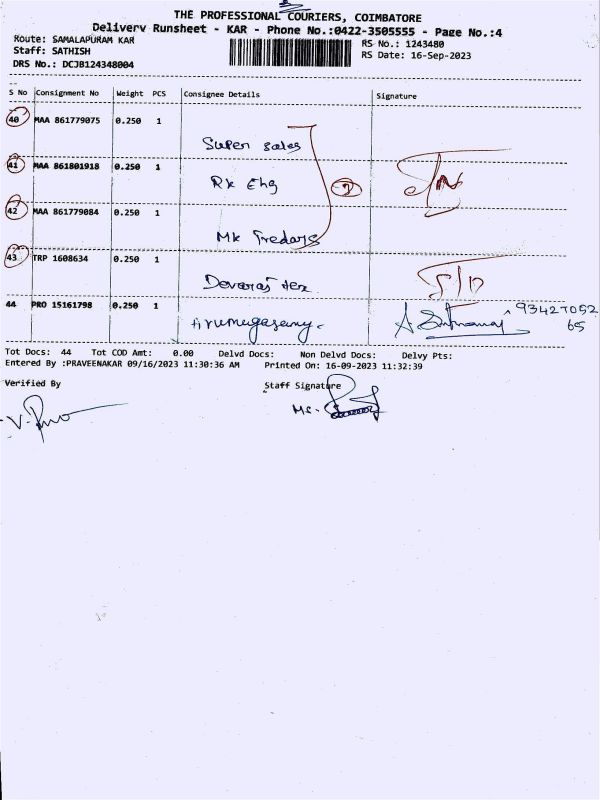 THE PROFESSIONAL COURIERS, COIMBATORE
Delivery Runsheet - KAR - Phone No.:0422-3505555 - Page No.:4
Route: SAMALAPURAM KAR
RS No.: 1243480
Staff: SATHISH
RS Date: 16-Sep-2023
DRS No.: DCJB124348004
S No Consignment No Weight PCS Consignee Details Signature
40 MAA 861779075 0.250 1
Super sales
41 MAA 861801918 0.250 1
Rk Eng
42 MAA 861779084 0.250 1
Mk Tredars
43 TRP 1608634 0.250 1
Devaraj tex
44 PRO 15161798 0.250 1
Arumugasamy
93427052
65
Tot Docs: 44 Tot COD Amt: 0.00 Delvd Docs: Non Delvd Docs: Delvy Pts:
Entered By :PRAVEENAKAR 09/16/2023 11:30:36 AM Printed On: 16-09-2023 11:32:39
Verified By Staff Signature